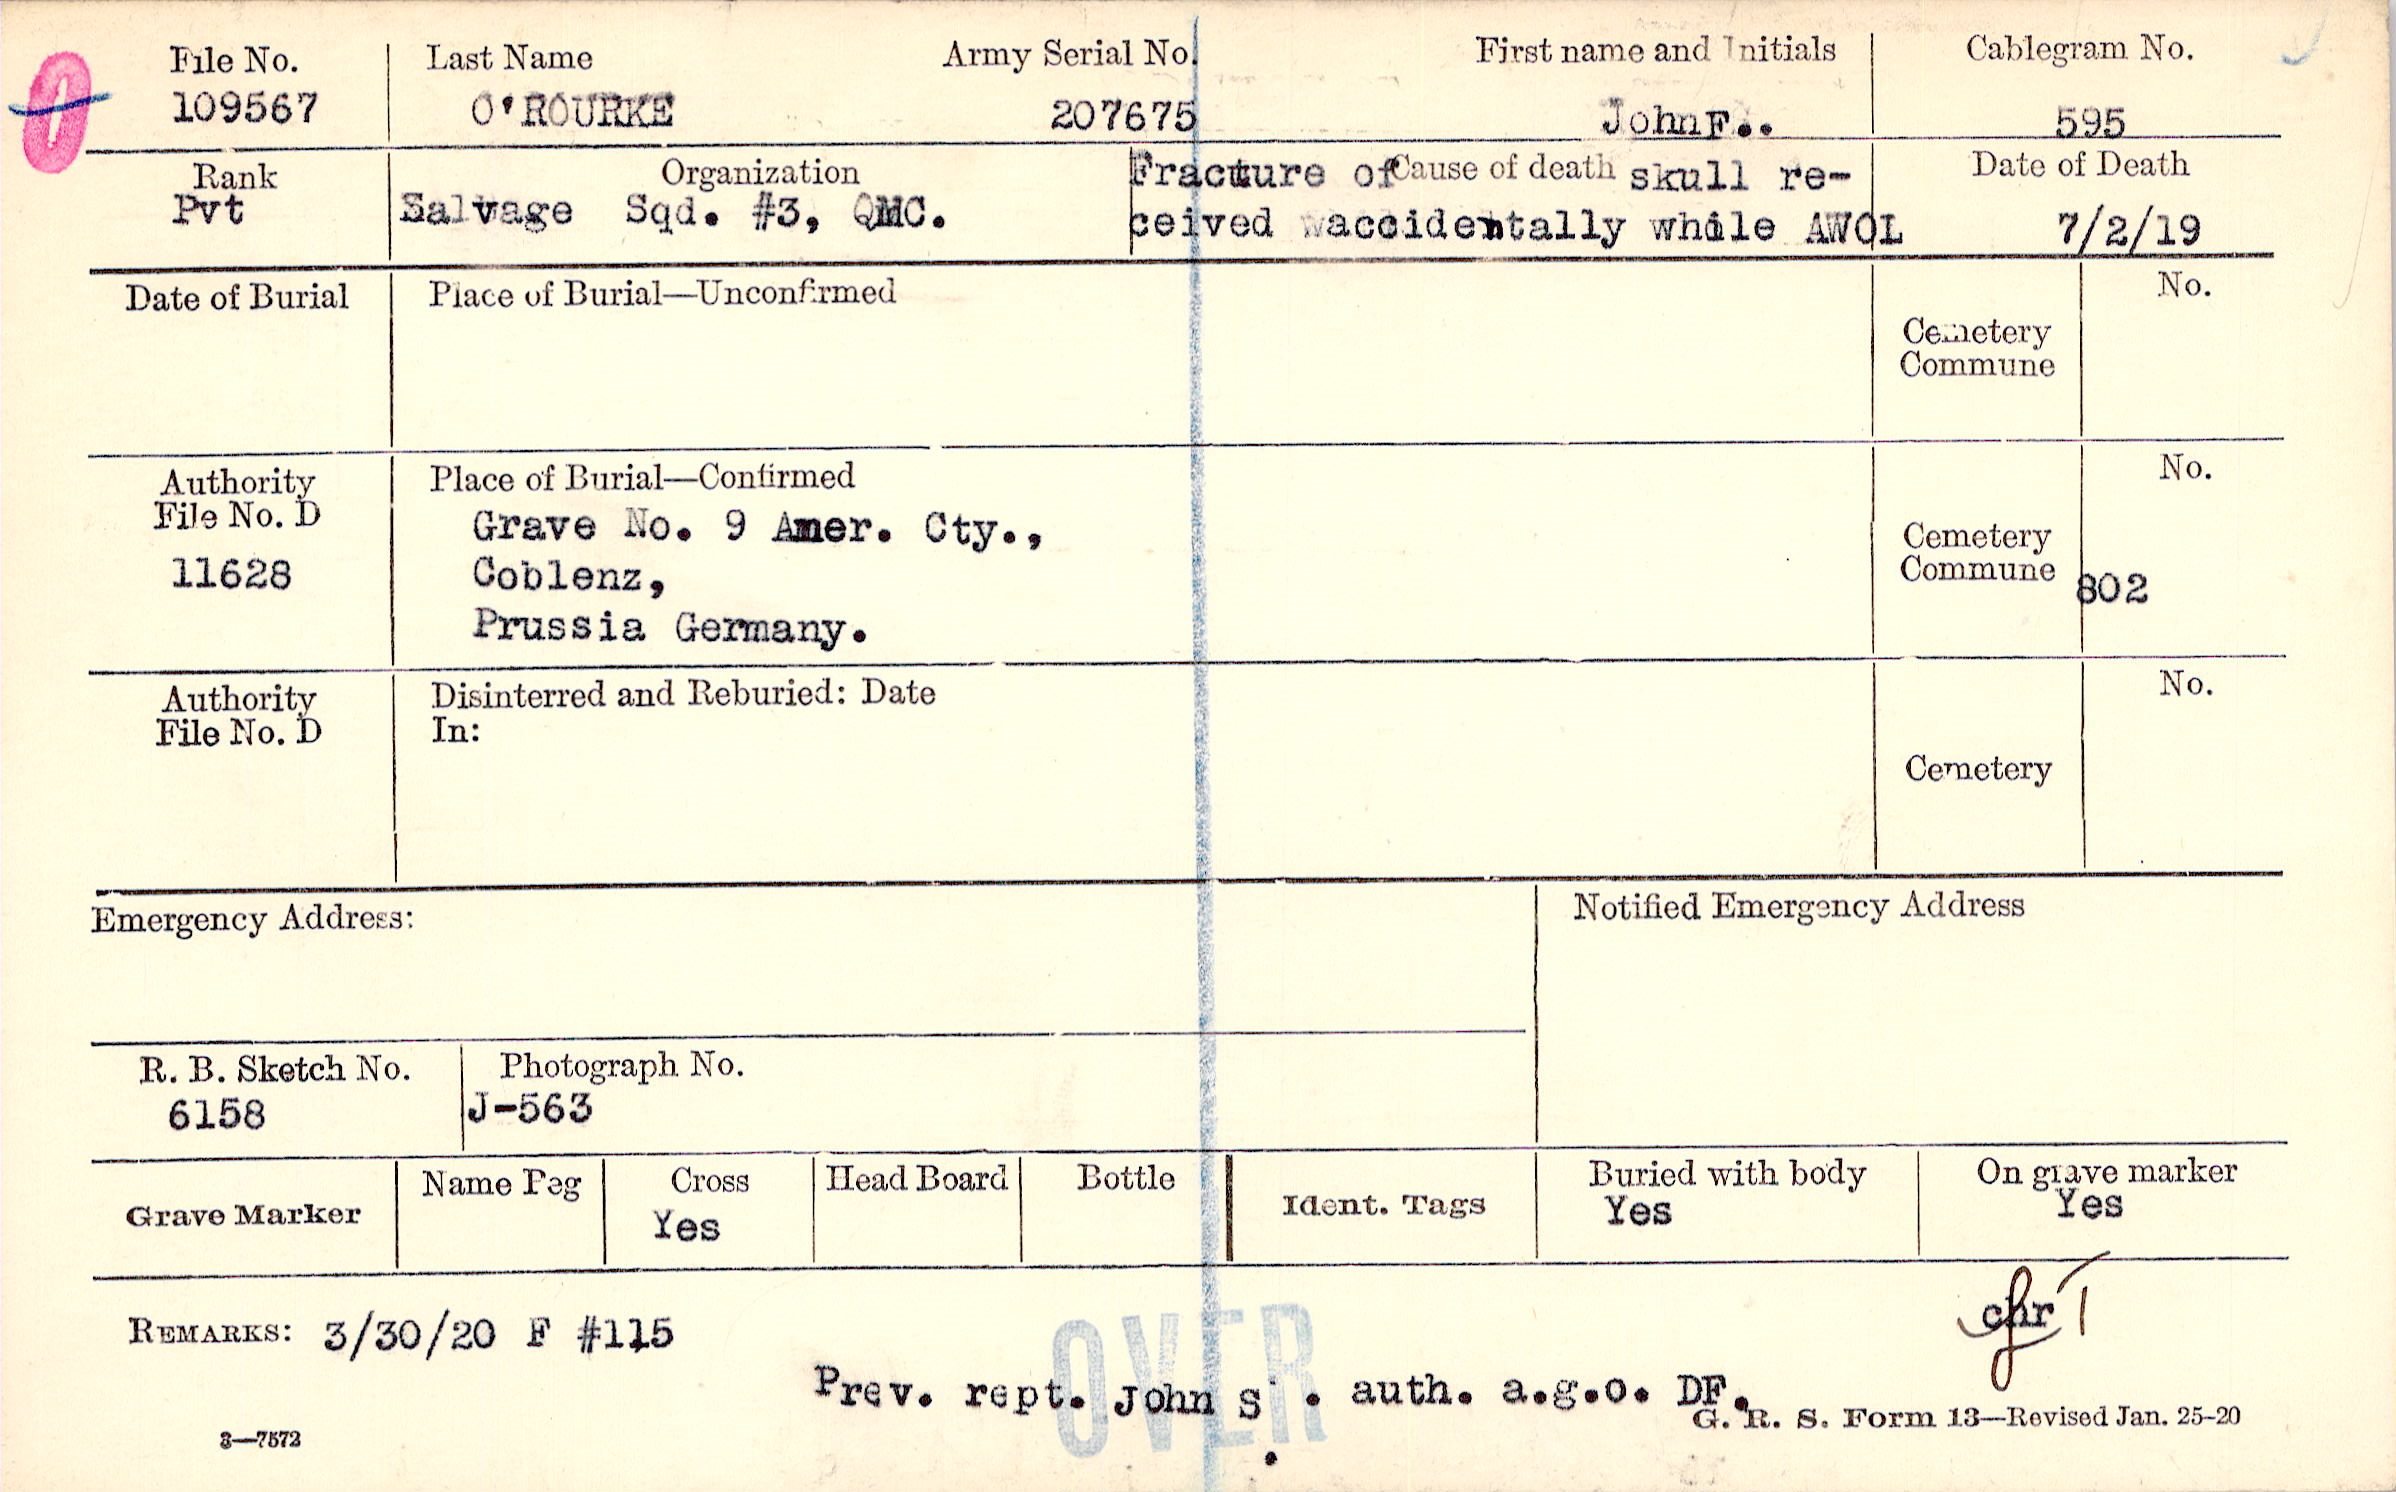 File No. Last Name Army Serial No. First name and Initials Cablegram No.
109567 O'ROURKE 207675 John F.. 595
Rank Organization Cause of death Date of Death
Pvt Salvage Sqd. #3, QMC. Fracture of skull re-
ceived accidentally while AWOL 7/2/19
Date of Burial Place of Burial—Unconfirmed No.
Cemetery
Commune
Authority Place of Burial—Confirmed No.
File No. D Grave No. 9 Amer. Cty., Cemetery
11628 Coblenz, Commune 802
Prussia Germany.
Authority Disinterred and Reburied: Date No.
File No. D In:
Cemetery
Emergency Address: Notified Emergency Address
R. B. Sketch No. Photograph No.
6158 J-563
Grave Marker Name Peg Cross Head Board Bottle Ident. Tags Buried with body On grave marker
Yes Yes Yes
REMARKS: 3/30/20 F #115 chr
OVER
Prev. rept. John S . auth. a.g.o. DF.
G. R. S. Form 13—Revised Jan. 25-20
3—7572